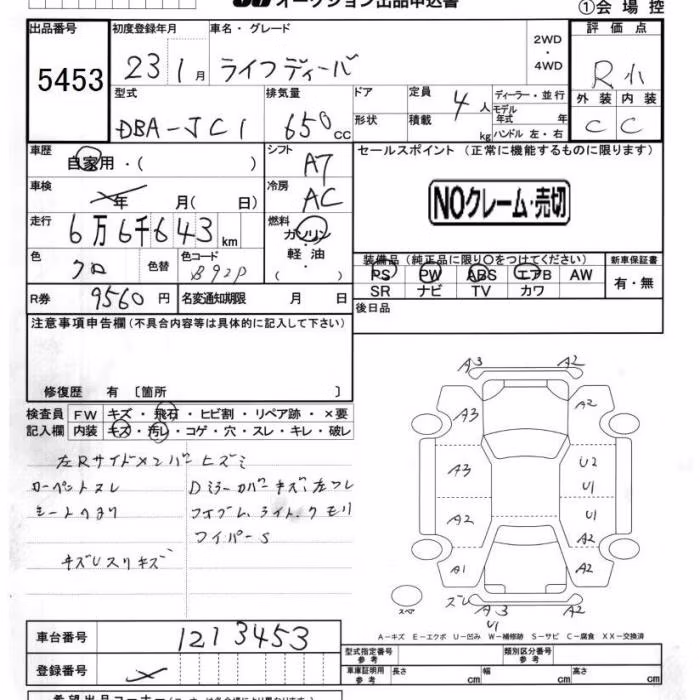 オークション出品申込書
①会場控
出品番号 5453
初度登録年月 23 1月
車名・グレード ライフディーバ
2WD・4WD
評価点 R小
外装 内装
C C
型式 DBA-JC1
排気量 650cc
ドア
形状
定員 4人
積載 kg
ディーラー・並行
モデル年式 年
ハンドル 左・右
車歴 自家用・( )
シフト A7
セールスポイント (正常に機能するものに限ります)
車検 年 月( 日)
冷房 AC
NOクレーム・売切
走行 6万6千643km
燃料 ガソリン・軽油 ( )
色 クロ
色替
色コード B92P
装備品 (純正品に限り○をつけてください)
新車保証書
PS PW ABS エアB AW
有・無
SR ナビ TV カワ
R券 9560円
名変通知期限 月 日
後日品
注意事項申告欄(不具合内容等は具体的に記入して下さい)
修復歴 有 〔箇所 〕
検査員記入欄
FW キズ・飛石・ヒビ割・リペア跡・×要
内装 キズ・汚レ・コゲ・穴・スレ・キレ・破レ
左Rサイドメンバーヒズミ
カーペットスレ Dミラーカバーキズ、左フレ
シートヘタリ ライト、クモリ
ワイパーS
キズUスリキズ
A3 A2
A3 A2
A3 U2
U1
A2 U1
A2
A1 A2
スペア
ズレ A3 A2
U1
A-キズ E-エクボ U-凹み W-補修跡 S-サビ C-腐食 XX-交換済
車台番号 1213453
型式指定番号 参考
類別区分番号 参考
登録番号
車庫証明用 参考 長さ cm 幅 cm 高さ cm